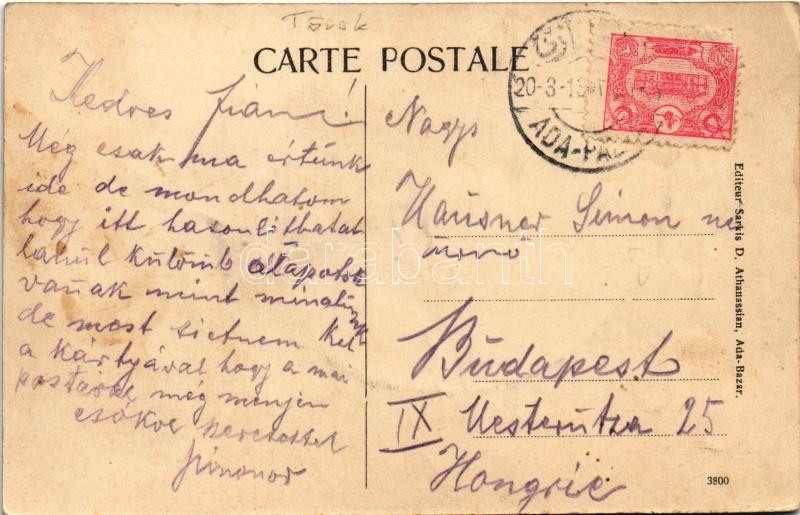 Török
CARTE POSTALE
20-3-13
ADA-PA
Kedves
Még csak ma értünk
ide de mondhatom
hogy itt hasonlithatat
lanul külömb állapotok
vanak mint minálunk
de most sietnem kel
a kártyával hogy a mai
postával még menjen
csókol szeretettel
Nagys
Hausner Simon
Budapest
IX Mesterutza 25
Hongrie
Editeur Sarkis D. Athanassian, Ada-Bazar.
3800
darabanth